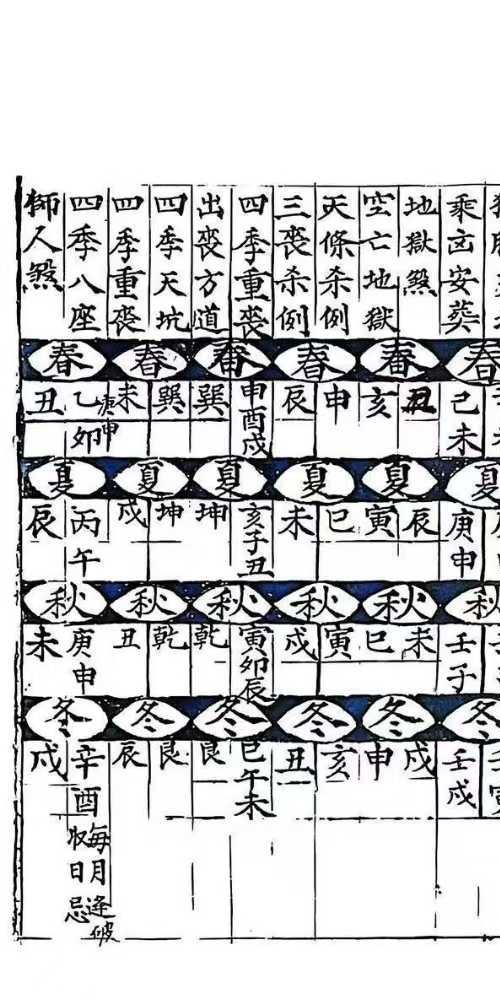 乘凶安葬
地獄煞
空亡地獄
天條杀例
三喪杀例
四季重喪
出喪方道
四季天坑
四季重喪
四季八座
師人煞
春 春 春 春 春 春
己未
丑
亥
申
辰
申酉戌
巽
巽
未
庚申
乙卯
丑
夏 夏 夏 夏 夏 夏
庚申
辰
寅
巳
未
亥子丑
坤
坤
戌
丙午
辰
秋 秋 秋 秋 秋 秋
壬子
未
巳
寅
戌
寅卯辰
乾
乾
丑
庚申
未
冬 冬 冬 冬 冬 冬
壬戌
戌
申
亥
丑
巳午未
艮
艮
辰
辛酉
戌
每月逢破
收日忌